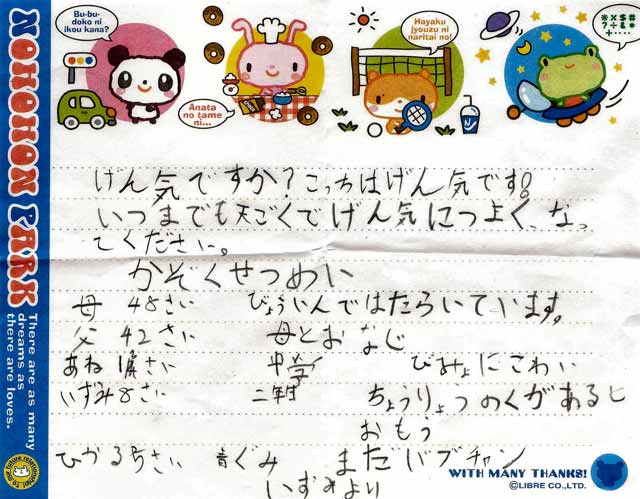 Bu-bu-
doko ni
ikou kana?
Anata
no tame
ni...
Hayaku
jyouzu ni
naritai no!
NOHOHON PARK
There are as many
dreams as
there are loves.
げん気ですか?こっちはげん気です!
いつまでも天ごくでげん気につよく、なっ
てください。
かぞくせつめい
母 48さい びょういんではたらいています。
父 42さい 母とおなじ
あね さい 中学 びみょにこわい
いずみ8さい 二年 ちょうりょうのくがあるヒ
おもう
ひかる5さい 音ぐみ まだバブチャン
いずみより
WITH MANY THANKS!
©LIBRE CO.,LTD.